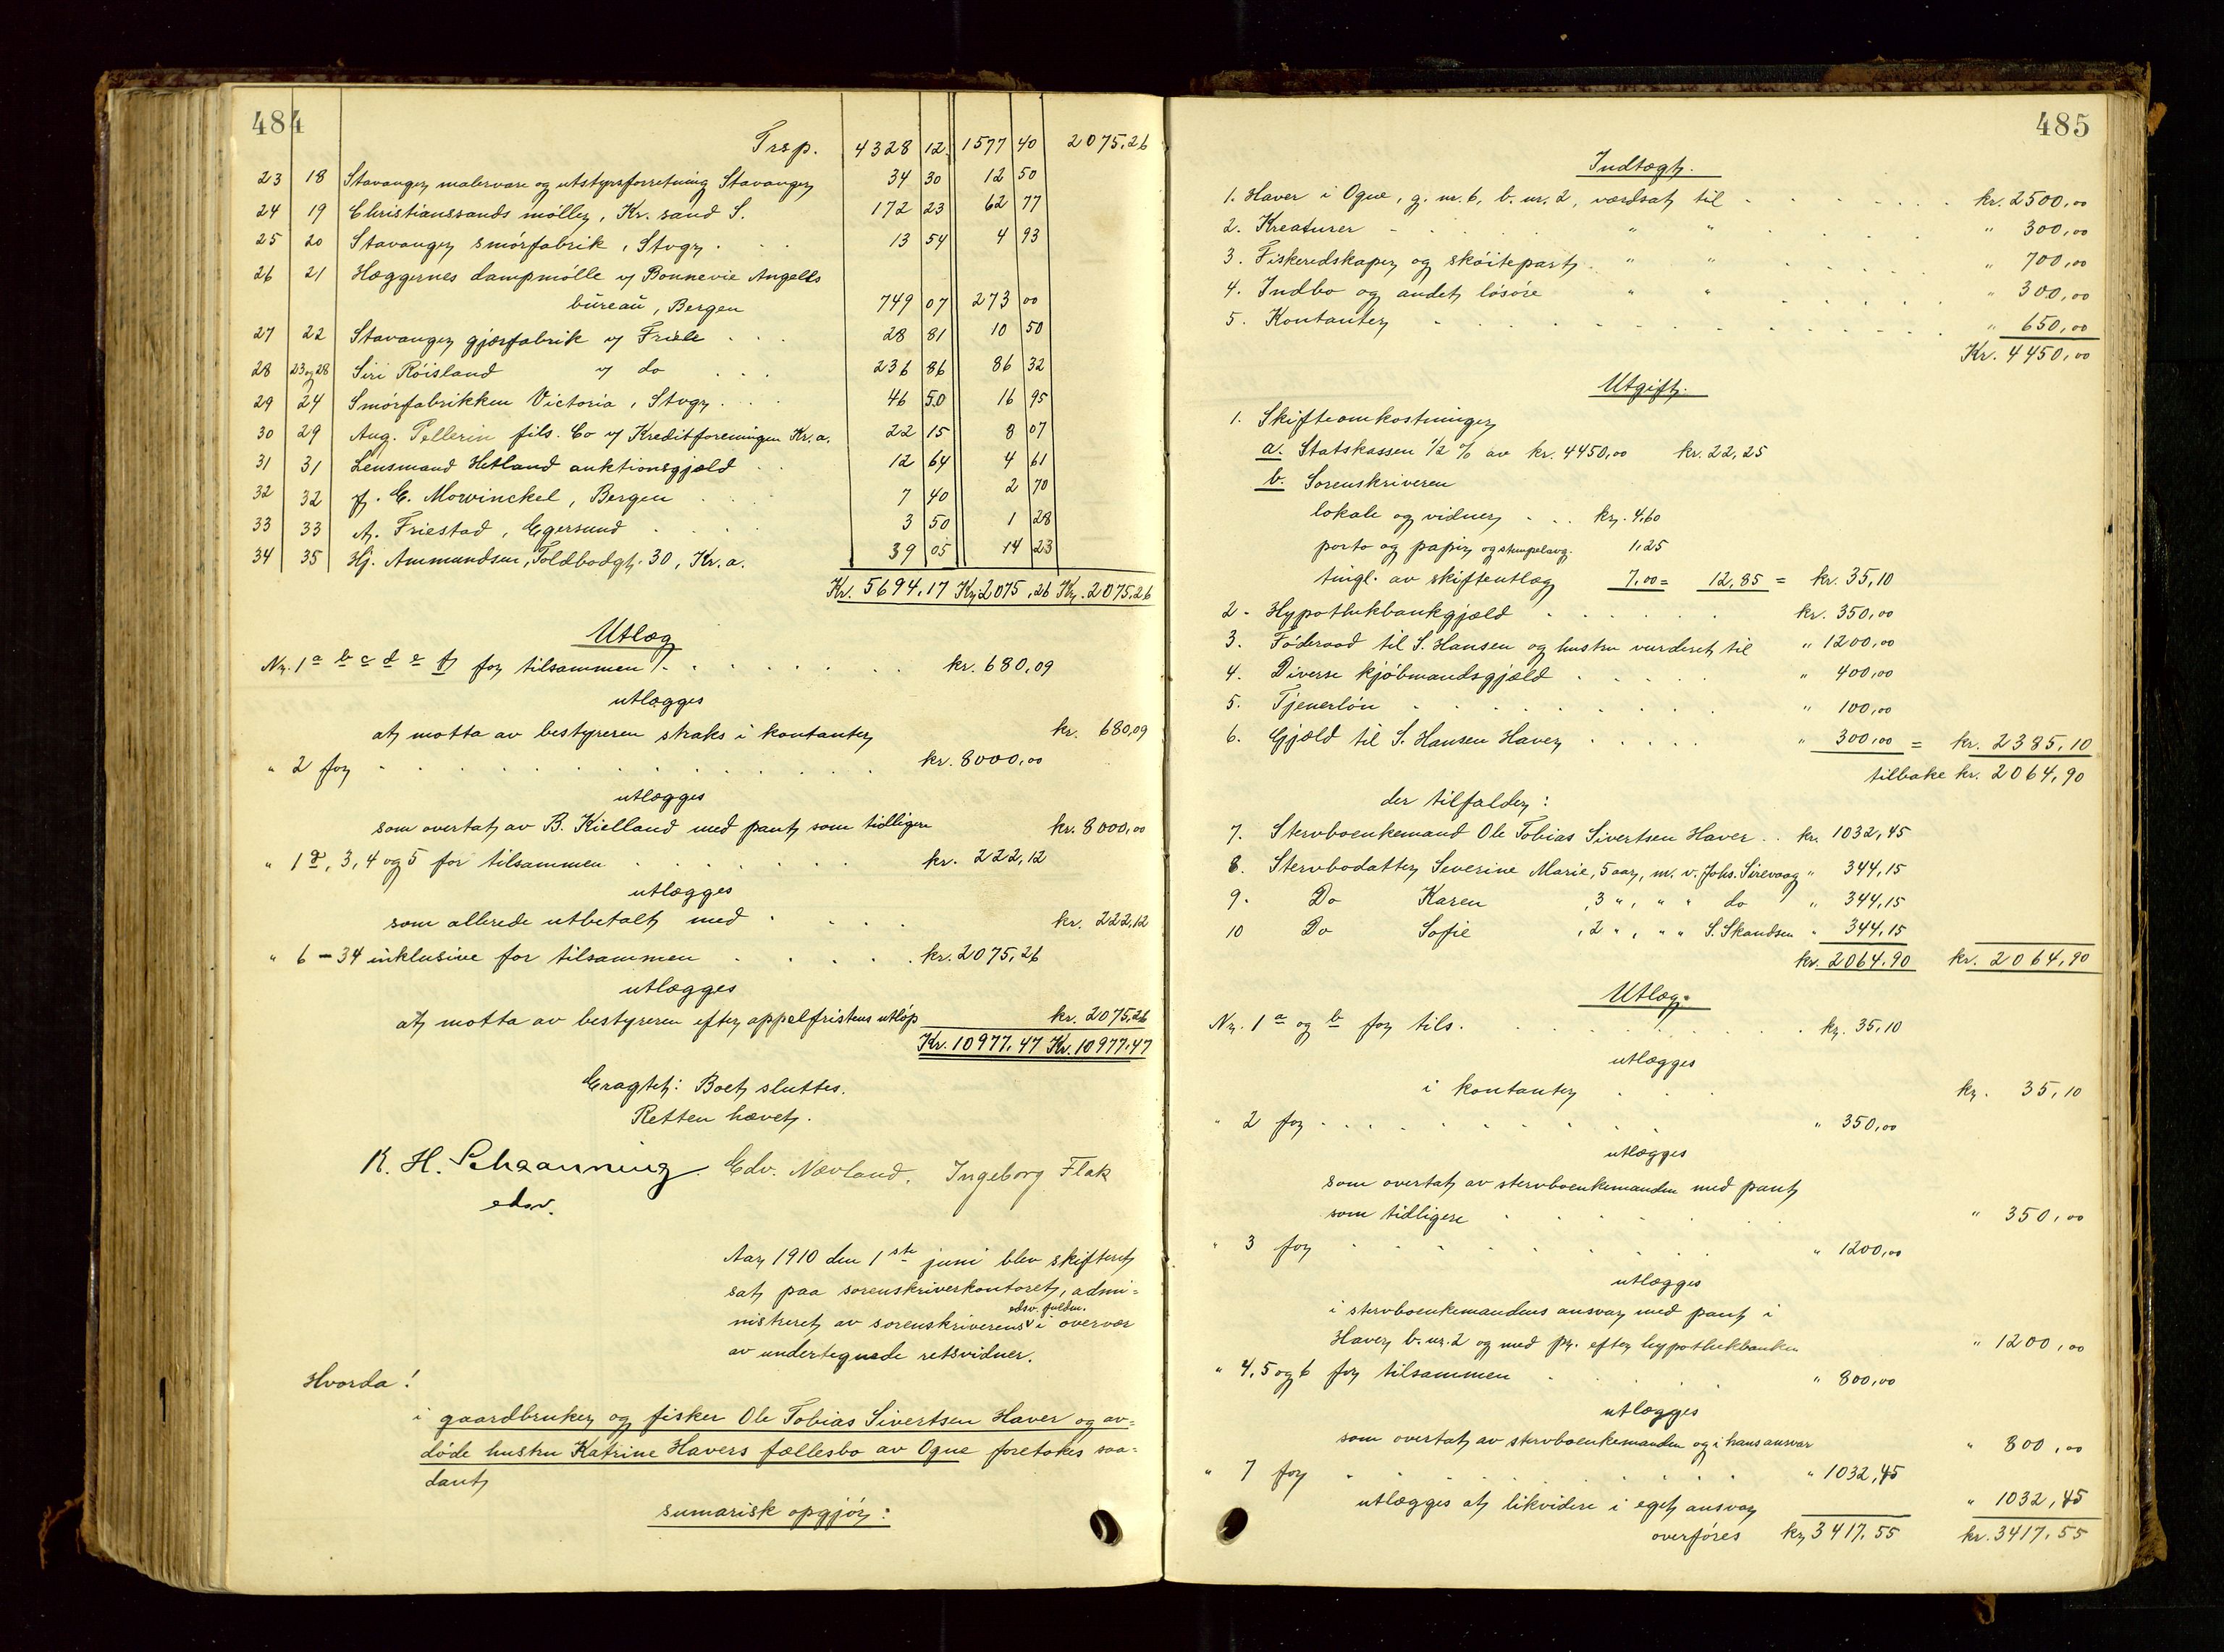 484
Trsp. 4328 12 1577 40 2075,26
23 18 Stavanger malervare og utstyrsforretning Stavanger 34 30 12 50
24 19 Christianssands møller, Kr.sand S. 172 23 62 77
25 20 Stavanger smørfabrik, Stvgr. 13 54 4 93
26 21 Hæggernes dampmølle v/ Bonnevie Angells
bureau, Bergen 749 07 273 00
27 22 Stavanger gjærfabrik v/ Friele 28 81 10 50
28 23 og 28 Siri Röisland v/ do 236 86 86 32
29 24 Smørfabrikken Victoria, Stvgr. 46 50 16 95
30 29 Aug. Pellerin fils. Co v/ Kreditforeningen Kr.a. 22 15 8 07
31 31 Lensmand Hetland auktionsgjæld 12 64 4 61
32 32 J. E. Mowinckel, Bergen 7 40 2 70
33 33 A. Friestad, Egersund 3 50 1 28
34 35 Hj. Ammundsen, Toldbodgt. 30, Kr.a. 39 05 14 23
Kr. 5694,17 Kr. 2075,26 Kr. 2075,26
Utlæg
Nr. 1 a b c d e f for tilsammen kr. 680,09
utlægges
at motta av bestyreren straks i kontanter kr. 680,09
" 2 for kr. 8000,00
utlægges
som overtat av B. Kielland med pant som tidligere kr. 8000,00
" 1 g, 3, 4 og 5 for tilsammen kr. 222,12
utlægges
som allerede utbetalt med kr. 222,12
" 6 - 34 inklusive for tilsammen kr. 2075,26
utlægges
at motta av bestyreren efter appelfristens utløp kr. 2075,26
Kr. 10977,47 Kr. 10977,47
Eragtet: Boet sluttes.
Retten hævet.
K. H. Schaanning Edv. Nævland. Ingeborg Flak
edsv.
Aar 1910 den 1ste juni blev skifteret
sat paa sorenskriverkontoret, admi=
nistreret av sorenskriverens edsv. fuldm. i overvær
av undertegnede retsvidner.
Hvorda!
i gaardbruker og fisker Ole Tobias Sivertsen Haver og av=
døde hustru Katrine Havers fællesbo av Ogne foretokes saa=
dant
sumarisk opgjør:
485
Indtægt.
1. Haver i Ogne, g. nr. 6, b. nr. 2, værdsat til kr. 2500,00
2. Kreaturer " " " 300,00
3. Fiskeredskaper og skøitepart " " " 700,00
4. Indbo og andet løsøre " " " 300,00
5. Kontanter " 650,00
Kr. 4450,00
Utgift.
1. Skifteomkostninger
a. Statskassen 1/2 % av kr. 4450,00 kr. 22,25
b. Sorenskriveren
lokale og vidner kr. 4,60
porto og papir og stempelavg. 1,25
tingl. av skifteutlæg 7,00 = 12,85 = kr. 35,10
2. Hypothekbankgjæld kr. 350,00
3. Føderaad til S. Hansen og hustru vurderet til " 1200,00
4. Diverse kjøbmandsgjæld " 400,00
5. Tjenerløn " 100,00
6. Gjæld til S. Hansen Haver " 300,00 = kr. 2385,10
tilbake kr. 2064,90
der tilfalder:
7. Stervboenkemand Ole Tobias Sivertsen Haver kr. 1032,45
8. Stervbodatter Severine Marie, 5 aar, m. v. Johs. Sirevaag " 344,15
9. Do Karen , 3 ", " " do " 344,15
10 Do Sofie , 2 ", " " S. Skandsen " 344,15
kr. 2064,90 kr. 2064,90
Utlæg.
Nr. 1 a og b for tils. kr. 35,10
utlægges
i kontanter kr. 35,10
" 2 for " 350,00
utlægges
som overtat av stervboenkemanden med pant
som tidligere " 350,00
" 3 for " 1200,00
utlægges
i stervboenkemandens ansvar med pant i
Haver b. nr. 2 og med pr. efter hypothekbanken " 1200,00
" 4, 5 og 6 for tilsammen " 800,00
utlægges
som overtat av stervboenkemanden og i hans ansvar " 800,00
" 7 for " 1032,45
utlægges at likvidere i eget ansvar " 1032,45
overføres kr. 3417,55 kr. 3417,55